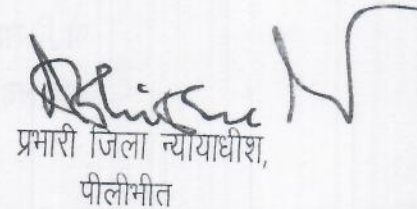 प्रभारी जिला न्यायाधीश,
पीलीभीत